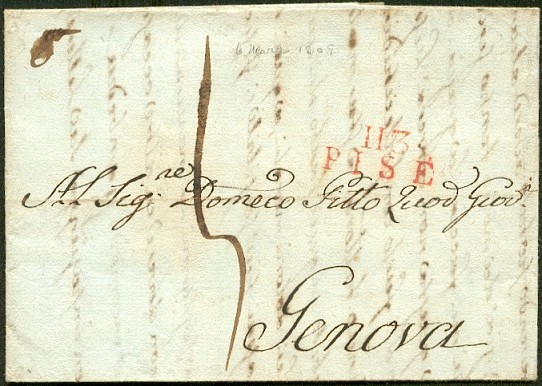 6 Marzo 1809
113
PISE
Al Sig.re Domeco Gitto Quod Giov.
Genova